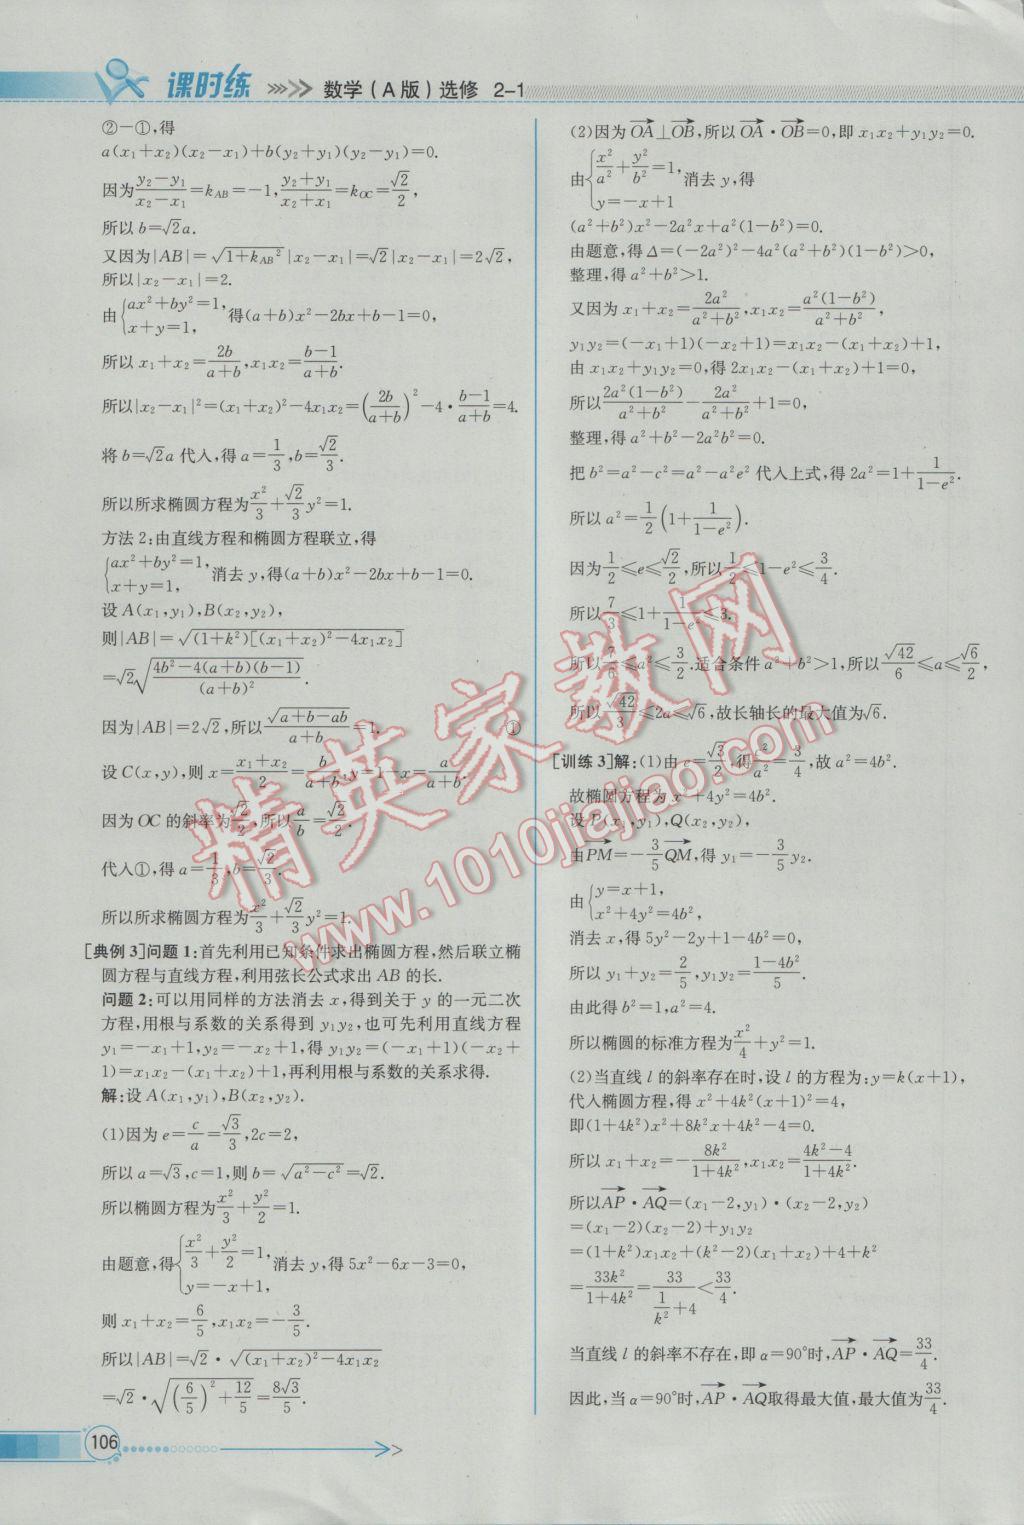 课时练 数学(A版)选修 2-1
②-①,得
a(x₁+x₂)(x₂-x₁)+b(y₂+y₁)(y₂-y₁)=0.
因为(y₂-y₁)/(x₂-x₁)=k_AB=-1,(y₂+y₁)/(x₂+x₁)=k_OC=√2/2,
所以b=√2a.
又因为|AB|=√(1+k_AB²)|x₂-x₁|=√2|x₂-x₁|=2√2,
所以|x₂-x₁|=2.
由{ax²+by²=1, x+y=1,得(a+b)x²-2bx+b-1=0,
所以x₁+x₂=2b/(a+b),x₁x₂=(b-1)/(a+b).
所以|x₂-x₁|²=(x₁+x₂)²-4x₁x₂=(2b/(a+b))²-4·(b-1)/(a+b)=4.
将b=√2a代入,得a=1/3,b=√2/3.
所以所求椭圆方程为x²/3+√2/3y²=1.
方法2:由直线方程和椭圆方程联立,得
{ax²+by²=1, x+y=1,消去y,得(a+b)x²-2bx+b-1=0.
设A(x₁,y₁),B(x₂,y₂),
则|AB|=√((1+k²)[(x₁+x₂)²-4x₁x₂])
=√2√((4b²-4(a+b)(b-1))/(a+b)²).
因为|AB|=2√2,所以√(a+b-ab)/(a+b)=1. ①
设C(x,y),则x=(x₁+x₂)/2=b/(a+b),y=1-x=a/(a+b).
因为OC的斜率为√2/2,所以a/b=√2/2.
代入①,得a=1/3,b=√2/3.
所以所求椭圆方程为x²/3+√2/3y²=1.
[典例3]问题1:首先利用已知条件求出椭圆方程,然后联立椭
圆方程与直线方程,利用弦长公式求出AB的长.
问题2:可以用同样的方法消去x,得到关于y的一元二次
方程,用根与系数的关系得到y₁y₂,也可先利用直线方程
y₁=-x₁+1,y₂=-x₂+1,得y₁y₂=(-x₁+1)(-x₂+
1)=x₁x₂-(x₁+x₂)+1,再利用根与系数的关系求得.
解:设A(x₁,y₁),B(x₂,y₂).
(1)因为e=c/a=√3/3,2c=2,
所以a=√3,c=1,则b=√(a²-c²)=√2.
所以椭圆方程为x²/3+y²/2=1.
由题意,得{x²/3+y²/2=1, y=-x+1,消去y,得5x²-6x-3=0,
则x₁+x₂=6/5,x₁x₂=-3/5.
所以|AB|=√2·√((x₁+x₂)²-4x₁x₂)
=√2·√((6/5)²+12/5)=8√3/5.
(2)因为OA⊥OB,所以OA·OB=0,即x₁x₂+y₁y₂=0.
由{x²/a²+y²/b²=1, y=-x+1,消去y,得
(a²+b²)x²-2a²x+a²(1-b²)=0.
由题意,得Δ=(-2a²)²-4a²(a²+b²)(1-b²)>0,
整理,得a²+b²>1.
又因为x₁+x₂=2a²/(a²+b²),x₁x₂=a²(1-b²)/(a²+b²),
y₁y₂=(-x₁+1)(-x₂+1)=x₁x₂-(x₁+x₂)+1,
由x₁x₂+y₁y₂=0,得2x₁x₂-(x₁+x₂)+1=0,
所以2a²(1-b²)/(a²+b²)-2a²/(a²+b²)+1=0,
整理,得a²+b²-2a²b²=0.
把b²=a²-c²=a²-a²e²代入上式,得2a²=1+1/(1-e²).
所以a²=1/2(1+1/(1-e²)).
因为1/2≤e≤√2/2,所以1/2≤1-e²≤3/4.
所以7/3≤1+1/(1-e²)≤3.
所以7/6≤a²≤3/2.适合条件a²+b²>1,所以√42/6≤a≤√6/2,
所以√42/3≤2a≤√6,故长轴长的最大值为√6.
[训练3]解:(1)由e=√3/2,得c²/a²=3/4,故a²=4b².
故椭圆方程为x²+4y²=4b².
设P(x₁,y₁),Q(x₂,y₂),
由PM=-3/5QM,得y₁=-3/5y₂.
由{y=x+1, x²+4y²=4b²,
消去x,得5y²-2y+1-4b²=0,
所以y₁+y₂=2/5,y₁y₂=(1-4b²)/5.
由此得b²=1,a²=4.
所以椭圆的标准方程为x²/4+y²=1.
(2)当直线l的斜率存在时,设l的方程为:y=k(x+1),
代入椭圆方程,得x²+4k²(x+1)²=4,
即(1+4k²)x²+8k²x+4k²-4=0.
所以x₁+x₂=-8k²/(1+4k²),x₁x₂=(4k²-4)/(1+4k²).
所以AP·AQ=(x₁-2,y₁)·(x₂-2,y₂)
=(x₁-2)(x₂-2)+y₁y₂
=(1+k²)x₁x₂+(k²-2)(x₁+x₂)+4+k²
=33k²/(1+4k²)=33/(1/k²+4)<33/4.
当直线l的斜率不存在,即α=90°时,AP·AQ=33/4.
因此,当α=90°时,AP·AQ取得最大值,最大值为33/4.
精英家教网
www.1010jiajiao.com
106